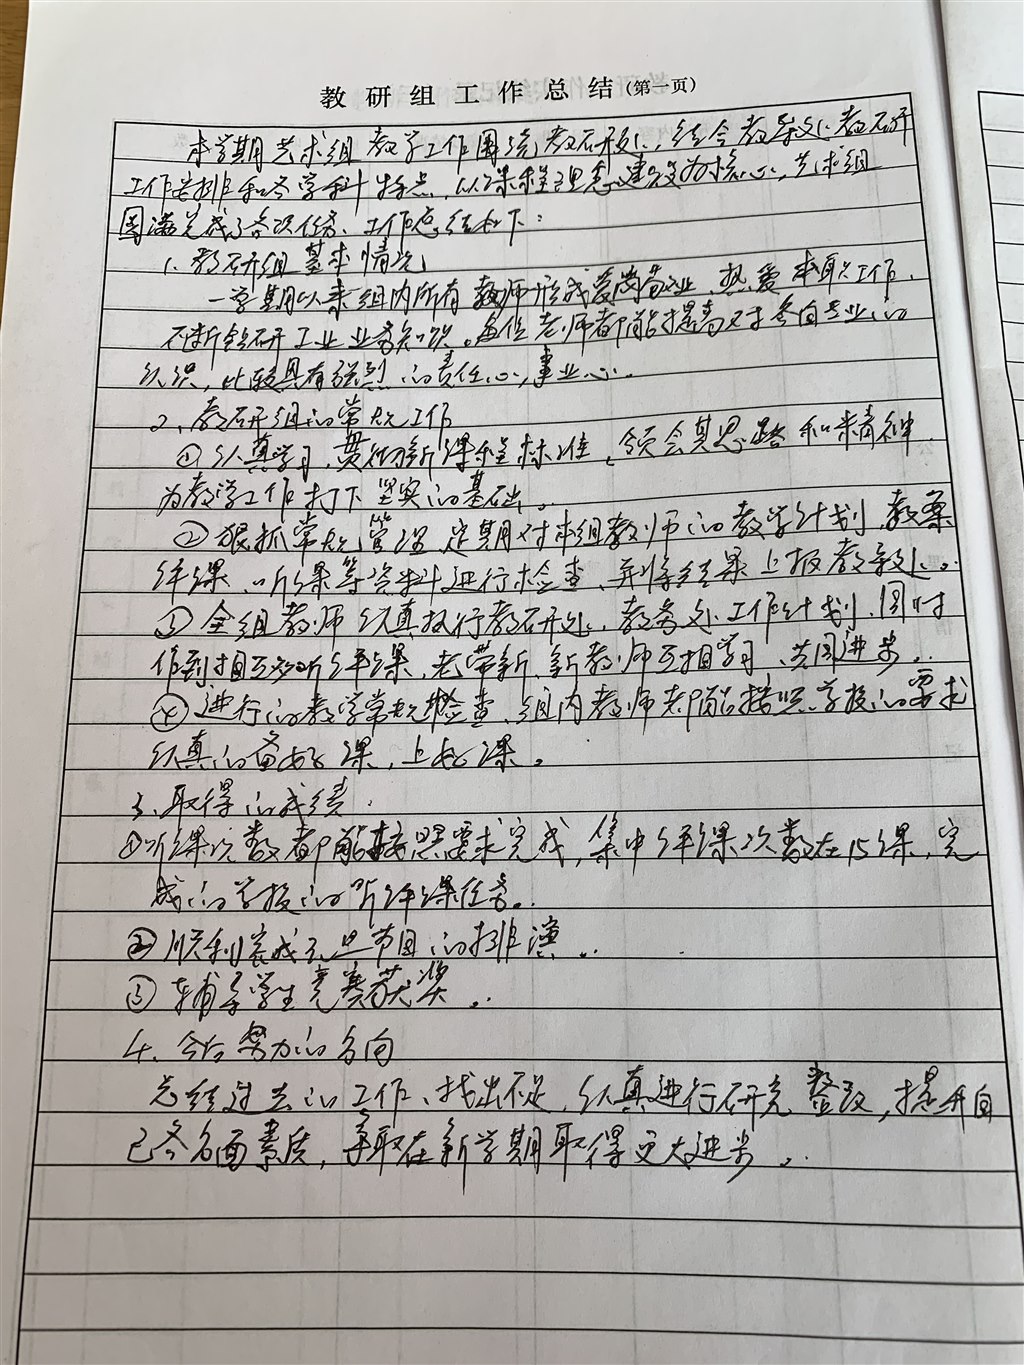 教研组工作总结(第一页)
本学期艺术组教学工作围绕教研处,结合教导处教研
工作安排和各学科特点,以课程理念建设为核心,艺术组
圆满完成了各项任务、工作总结如下:
1、教研组基本情况
一学期以来组内所有教师形成爱岗敬业、热爱本职工作、
不断钻研工业业务知识。每位老师都能提高对各自专业的
认识,比较具有强烈的责任心,事业心。
2、教研组的常规工作
①认真学习,贯彻新课程标准,领会其思路和精神
为教学工作打下坚实的基础。
②狠抓常规管理,定期对本组教师的教学计划、教案
评课、听课等资料进行检查、并将结果上报教务处。
③全组教师认真执行教研处、教务处工作计划,同时
作到相互听评课,老带新、新教师互相学习、共同进步。
④进行的教学常规检查、组内教师都能按照学校的要求
认真的备好课,上好课。
3、取得的成绩
①听课次数都能按照要求完成,集中评课次数在15课,完
成的学校的听评课任务。
②顺利完成元旦节目的排演。
③辅导学生竞赛获奖。
4、今后努力的方向
总结过去的工作、找出不足,认真进行研究整改,提升自
己各方面素质,争取在新学期取得更大进步。